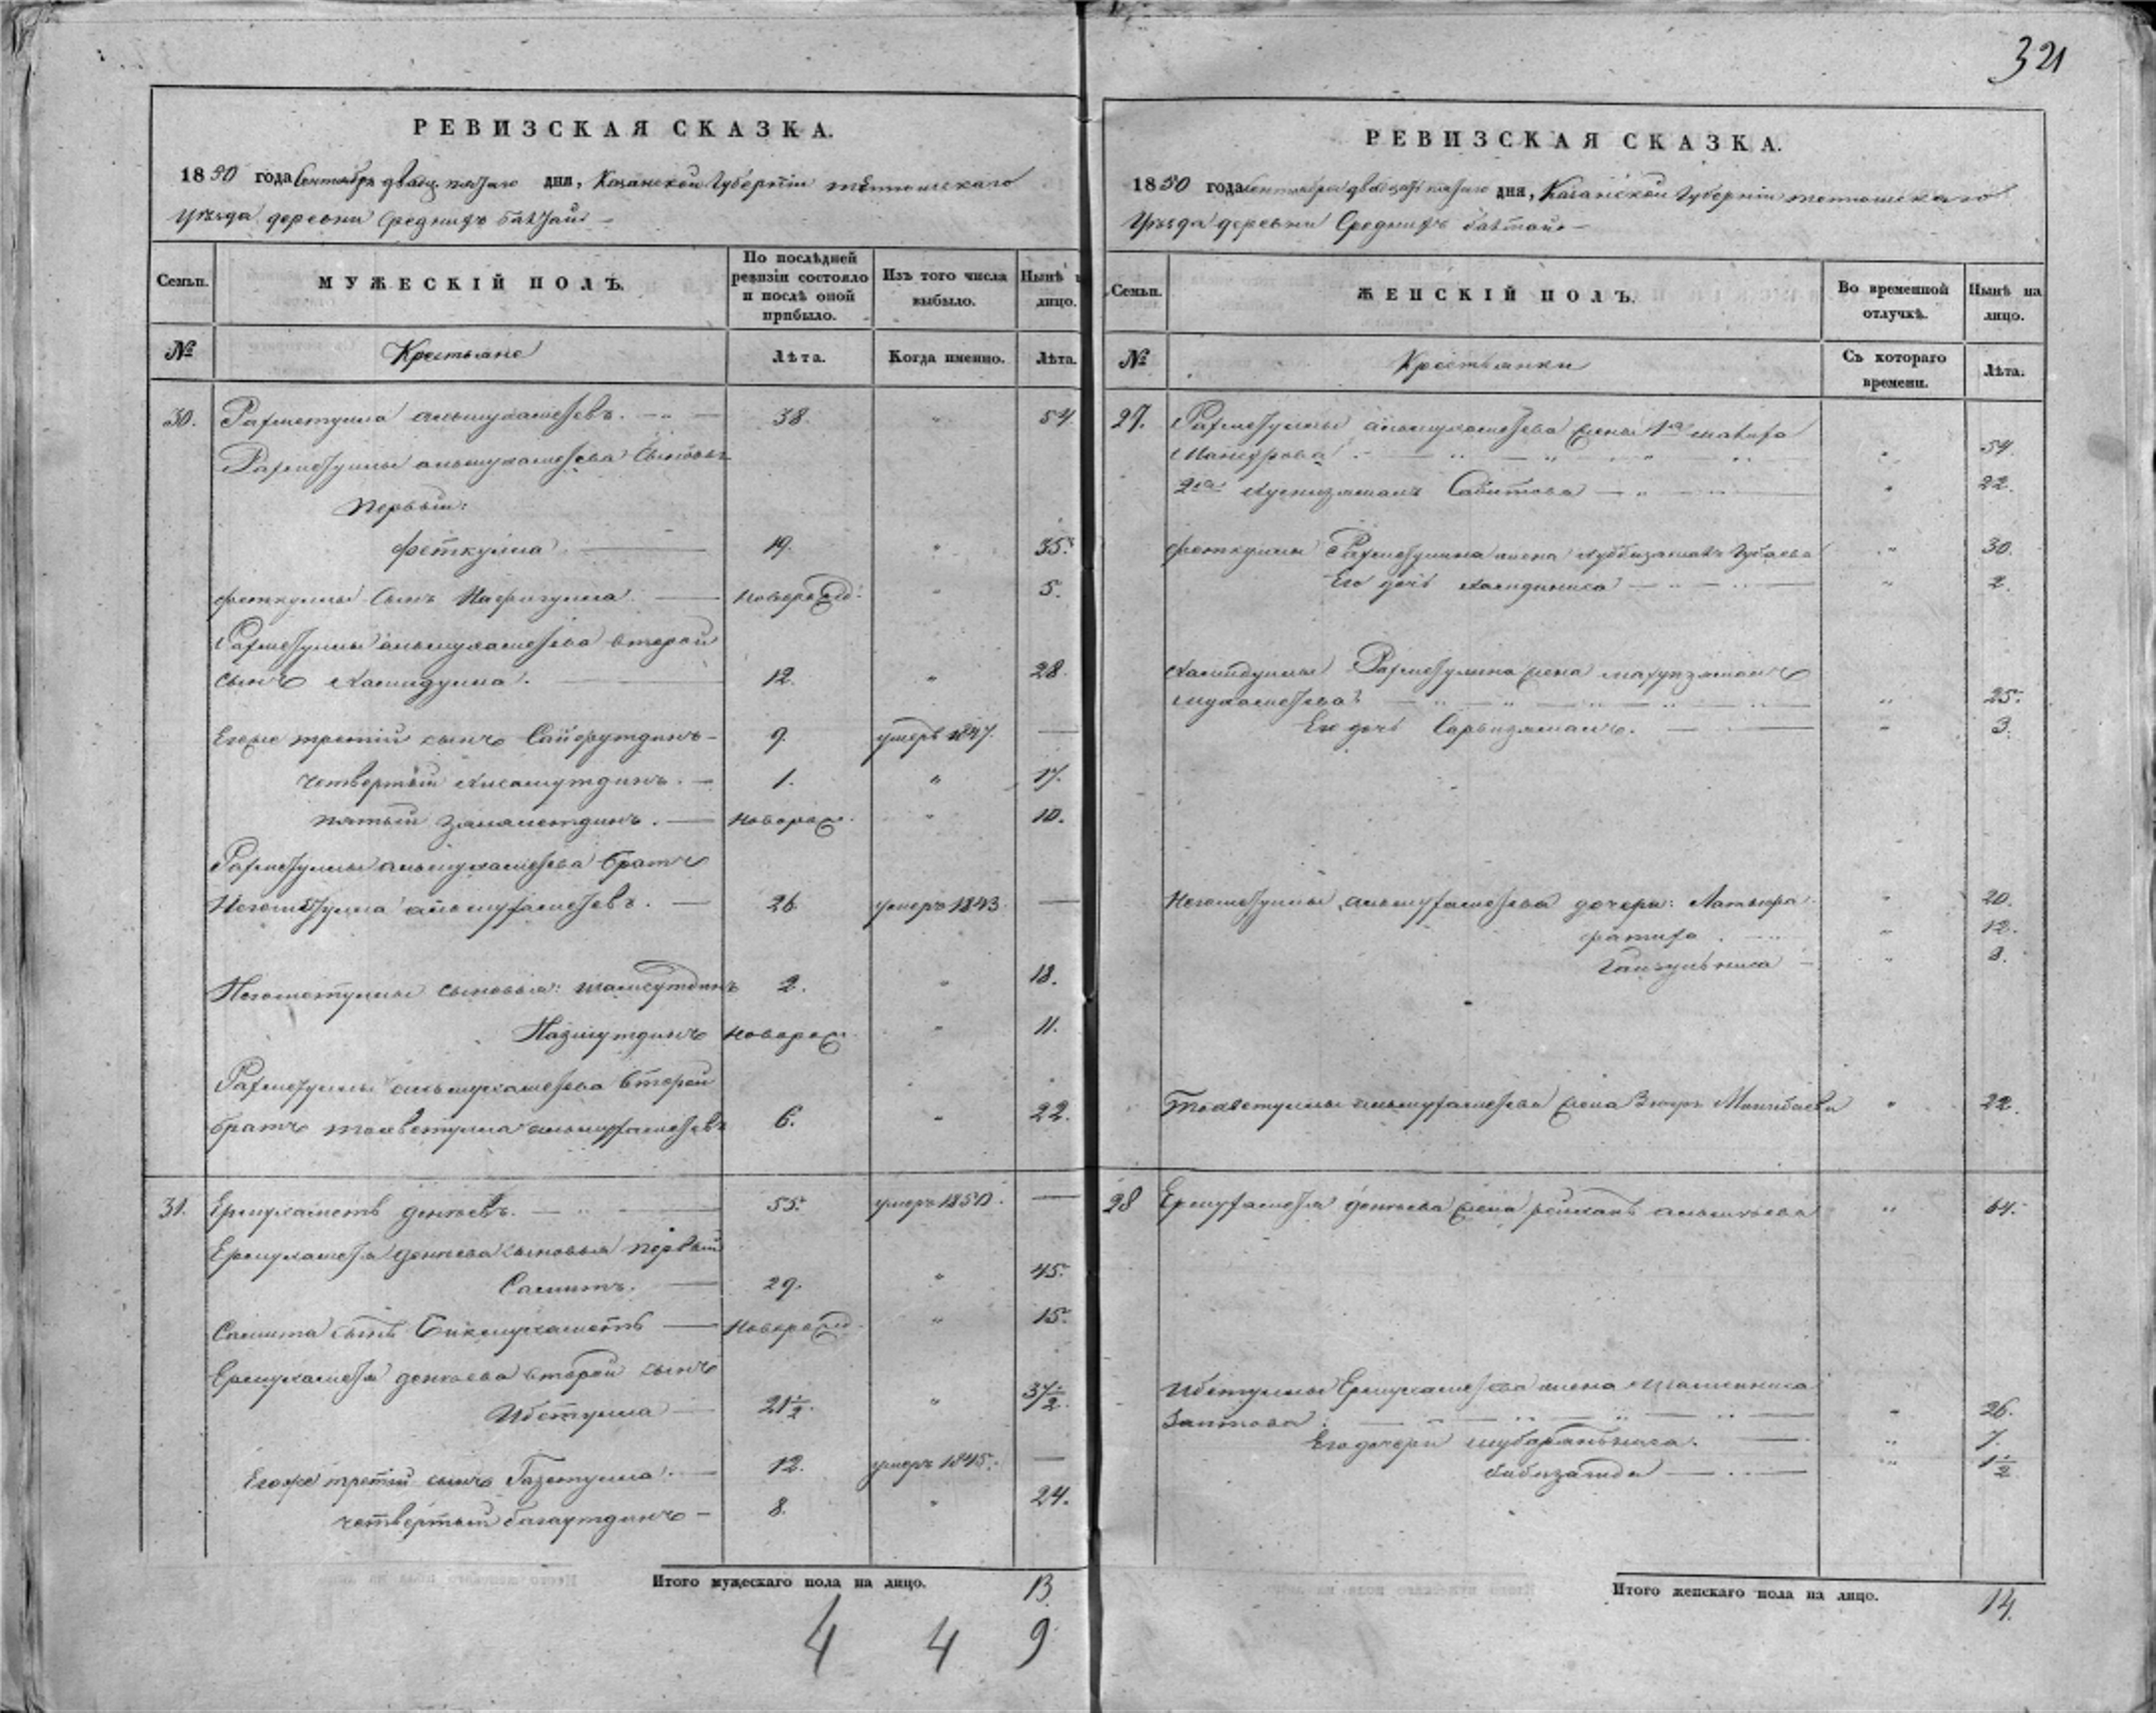 321
РЕВИЗСКАЯ СКАЗКА.
1850 года Сентября двадц. пятаго дня, Казанской Губерніи тетюшскаго
Уѣзда деревни Среднихъ Балтай
Семьи.
МУЖЕСКІЙ ПОЛЪ.
По послѣдней ревизіи состояло и послѣ оной прибыло.
Изъ того числа выбыло.
Нынѣ на лицо.
№
Крестьяне
Лѣта.
Когда именно.
Лѣта.
30. Рахметулла альмухаметевъ. 38. " 54
Рахметуллы альмухаметева Сыновья
первый:
фѣткулла 19. " 35.
фѣткуллы Сынъ Нафигулла новорожд. " 5.
Рахметуллы альмухаметева второй
сынъ Хамидулла. 12. " 28.
Егоже третій сынъ Сайфутдинъ 9. умеръ 1847. —
четвертый Хисамутдинъ. 1. " 17.
пятый Замалетдинъ. новорож. " 10.
Рахметуллы альмухаметева братъ
Негаметулла альмухаметевъ. 26 умеръ 1843 —
Негаметуллы сыновья: шамсутдинъ 2. " 18.
Назмутдинъ новорож. " 11.
Рахметуллы альмухаметева второй
братъ альмухаметевъ 6. " 22.
31. Ермухаметъ денеевъ. 55. умеръ 1850. —
Ермухаметя денеева сыновья первый
Самитъ. 29. " 45.
Самита сынъ Бикмухаметъ новорожд. " 15.
Ермухаметя денеева второй сынъ
Ибетулла 21½. " 37½.
Егоже третій сынъ Газетулла. 12. умеръ 1845. —
четвертый багаутдинъ 8. " 24.
Итого мужескаго пола на лицо. 13.
4 4 9
РЕВИЗСКАЯ СКАЗКА.
1850 года Сентября двадцать пятаго дня, Казанской Губерніи тетюшскаго
Уѣзда деревни Среднихъ балтай
Семьи.
ЖЕНСКІЙ ПОЛЪ.
Во временной отлучкѣ.
Нынѣ на лицо.
№
Крестьянки
Съ котораго времени.
Лѣта.
27. Рахметуллы альмухаметева жены 1я
Мансурова " 54.
2я Хуснизяманъ Сабитова " 22.
фѣткуллы Рахметуллина жена Губаева " 30.
Его дочь Хамдиниса " 2.
Хамидуллы Рахметуллина жена
мухаметева " 25.
Его дочь Сарбизяманъ. " 3.
Негаметуллы альмухаметева дочери: Латыфа " 20.
фатиха " 12.
" 8.
альмухаметева жена " 22.
28 Ермухаметя денеева жена альмеева " 64.
Ибетуллы Ермухаметева жена Шамсиниса
Заитова " 26.
Его дочери мубараньниса. " 7.
Хабизямда " 1½
Итого женскаго пола на лицо. 14.